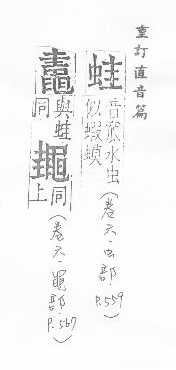 重訂直音篇
蛙 音窊水虫似蝦蟆(卷六·虫部·P.559)
鼃 與蛙同 䵷 同上(卷六·黽部·P.567)